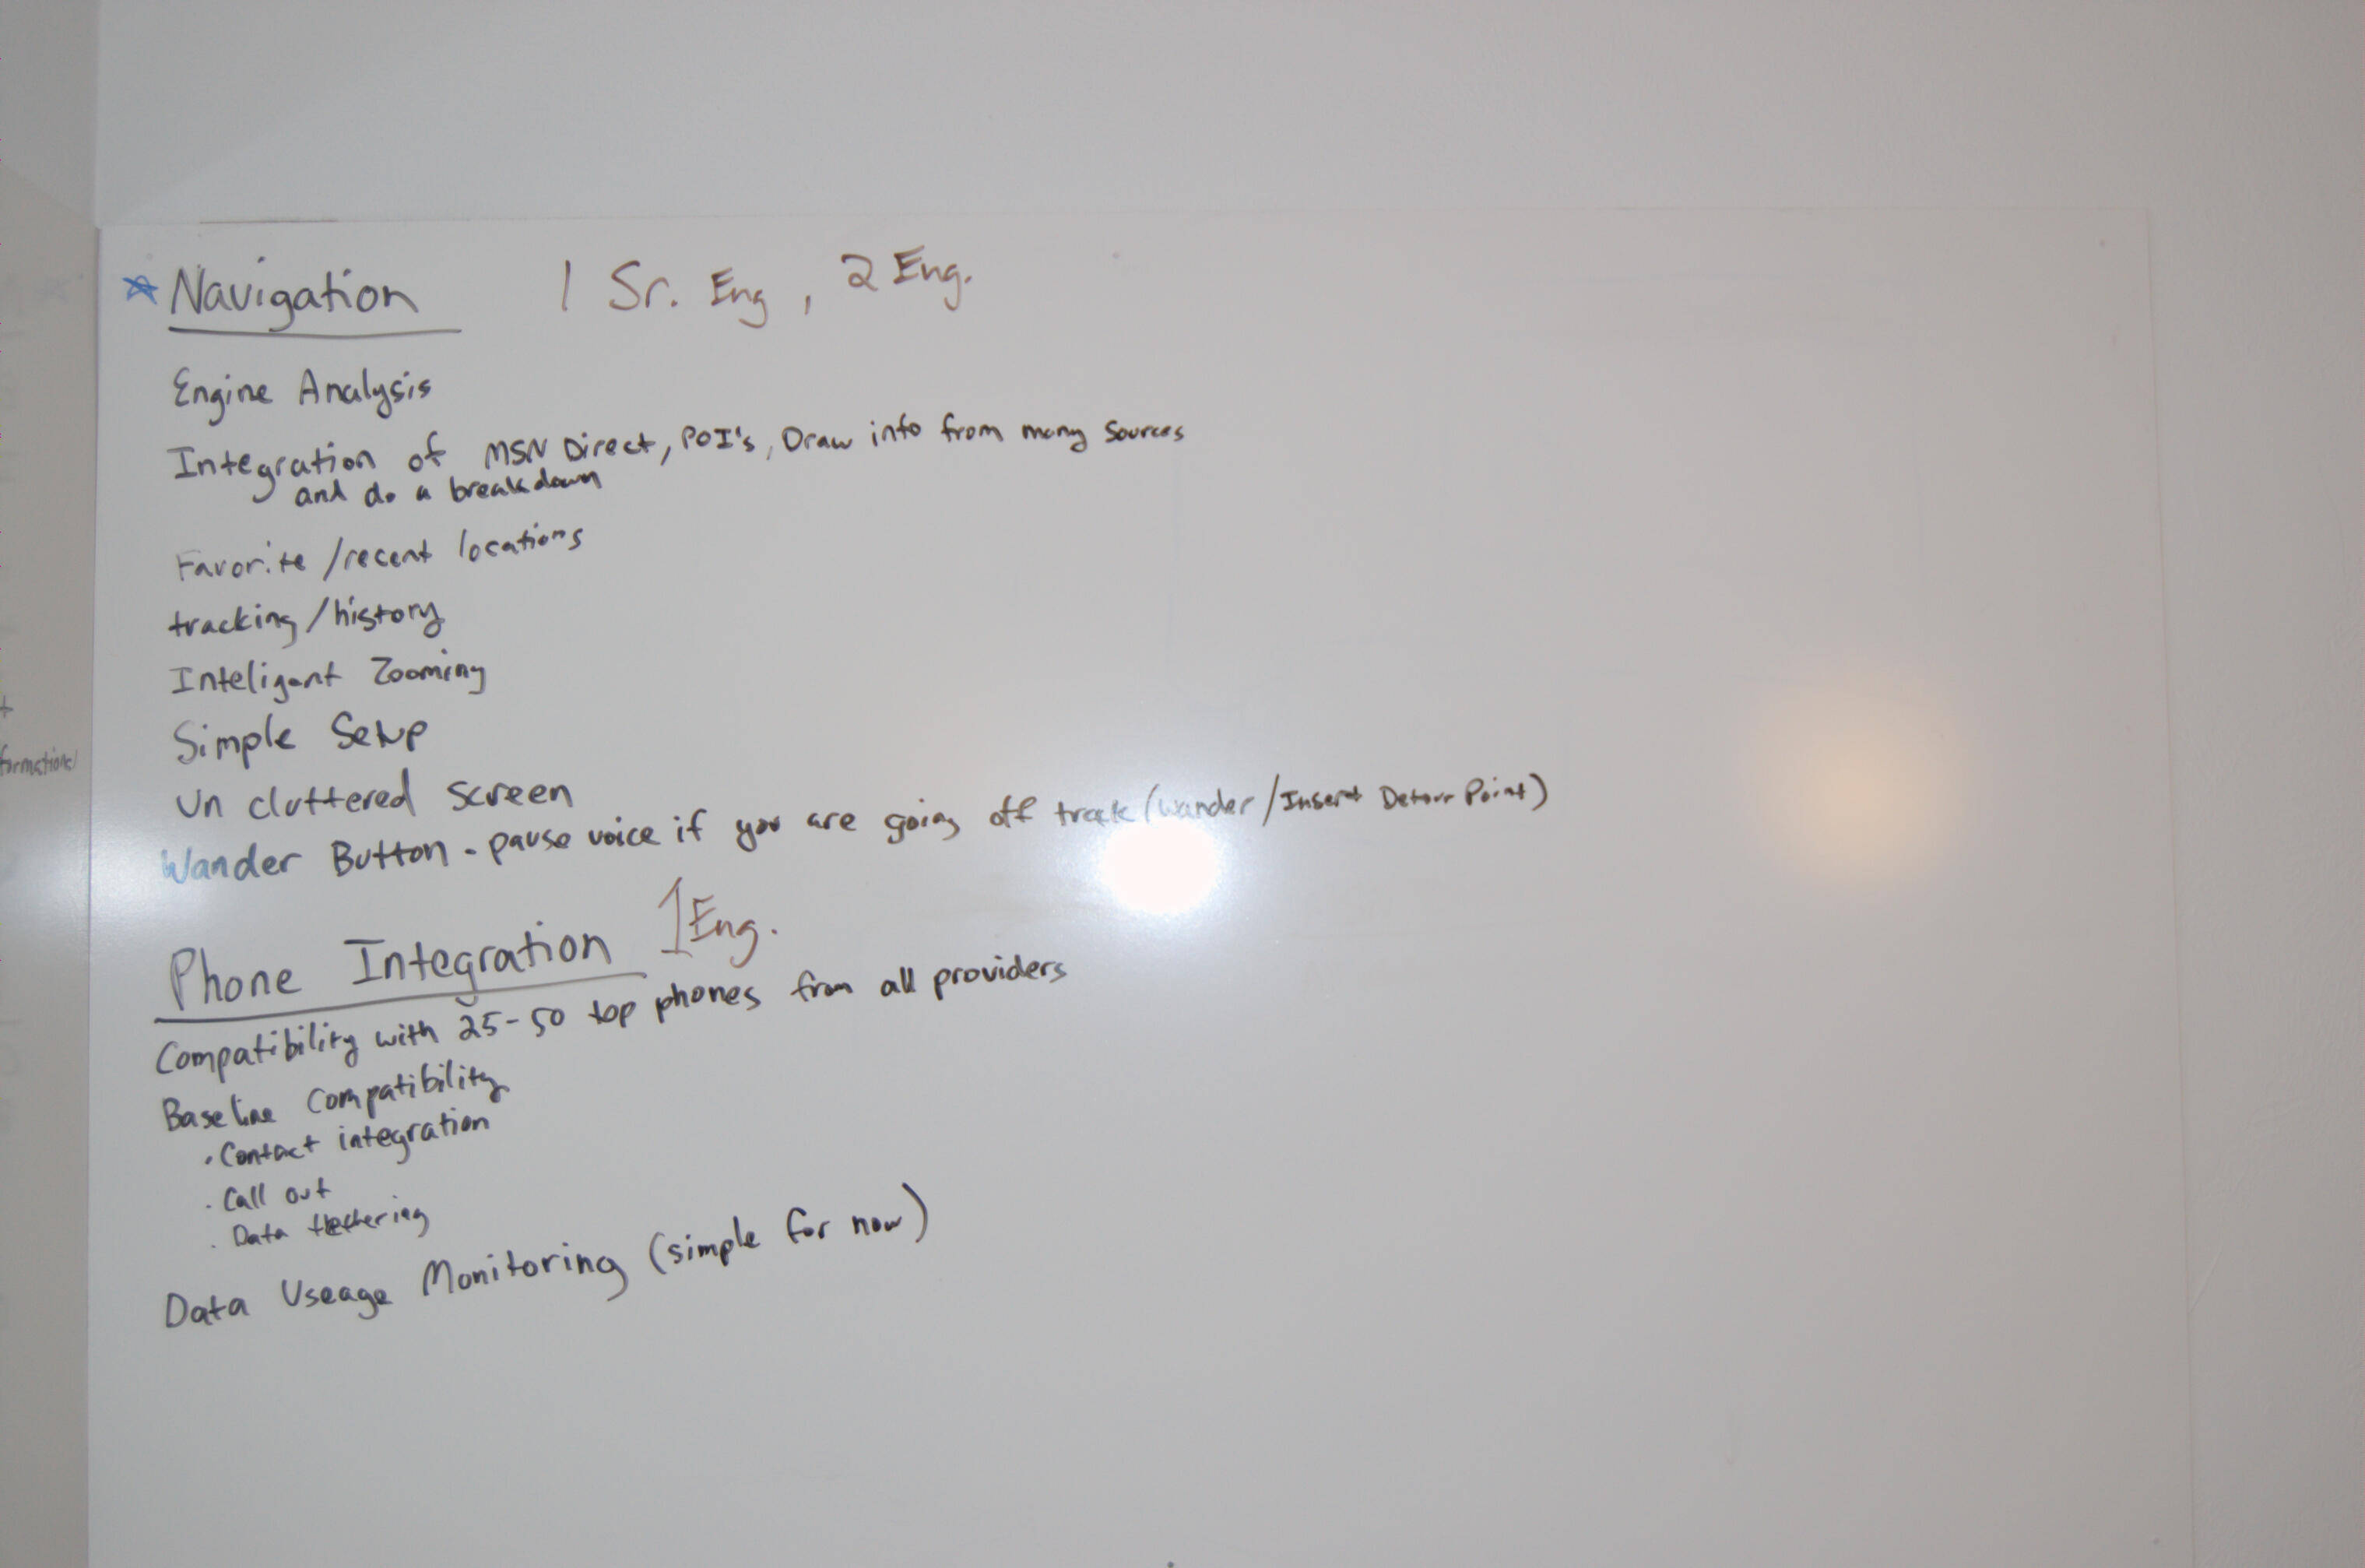 Navigation 1 Sr. Eng, 2 Eng.
Engine Analysis
Integration of MSN Direct, POI's, Draw info from many sources
and do a breakdown
Favorite/recent locations
tracking/history
Inteligant Zooming
Simple Setup
Un cluttered screen
Wander Button - pause voice if you are going off track (wander/Insert Detour Point)
Phone Integration 1 Eng.
Compatibility with 25-50 top phones from all providers
Baseline Compatibility
· Contact integration
· Call out
· Data tethering
Data Useage Monitoring (simple for now)